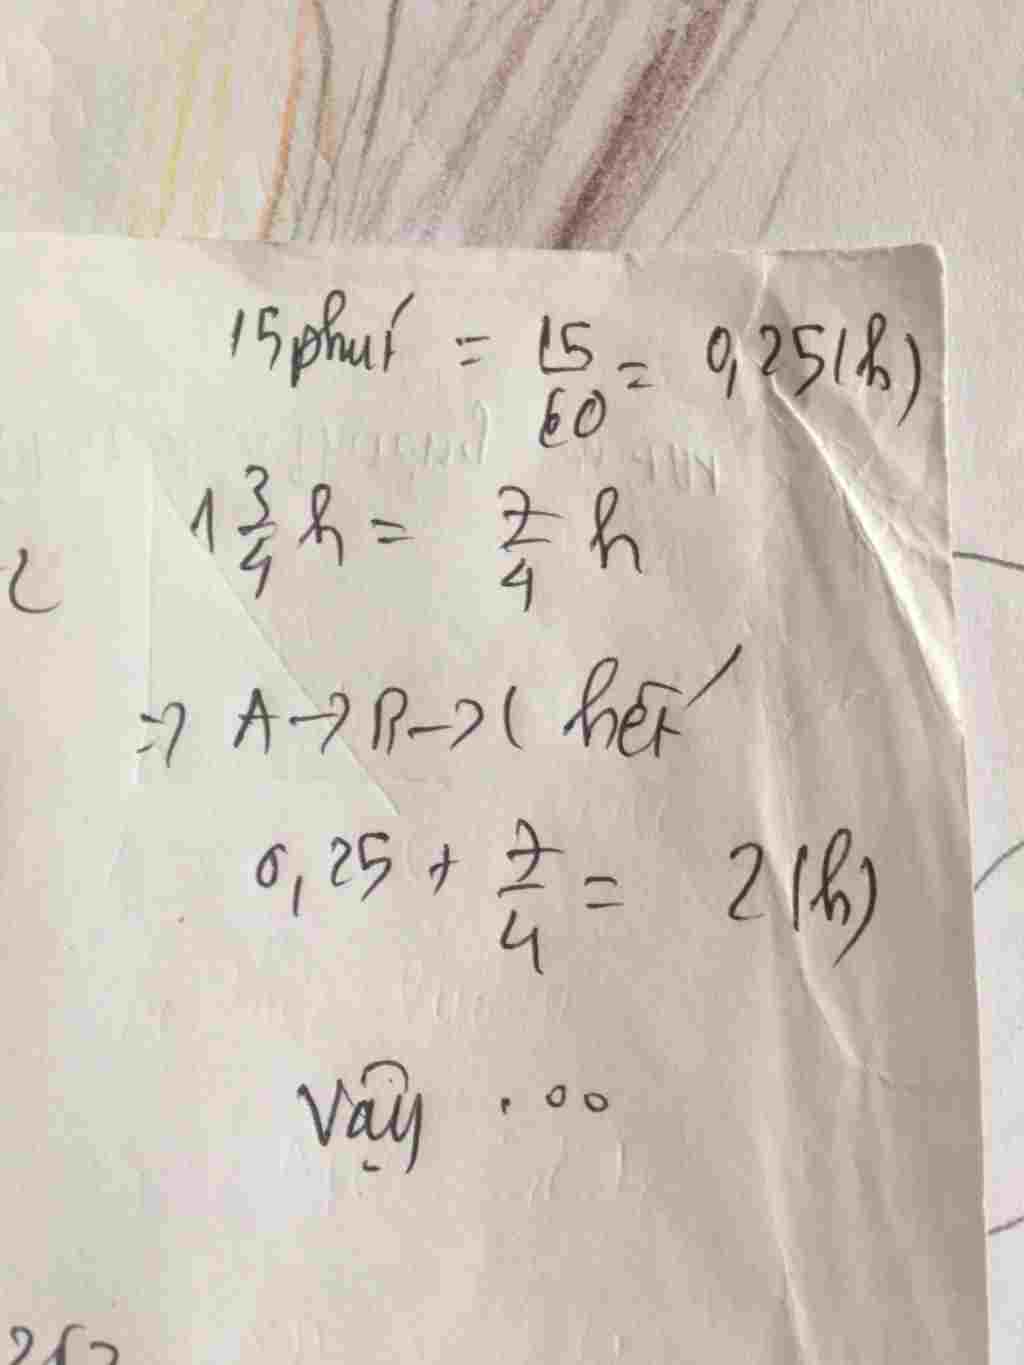 15 phút = 15/60 = 0,25 (h)
1 3/4 h = 7/4 h
=> A -> B -> C hết
0,25 + 7/4 = 2 (h)
Vậy ...